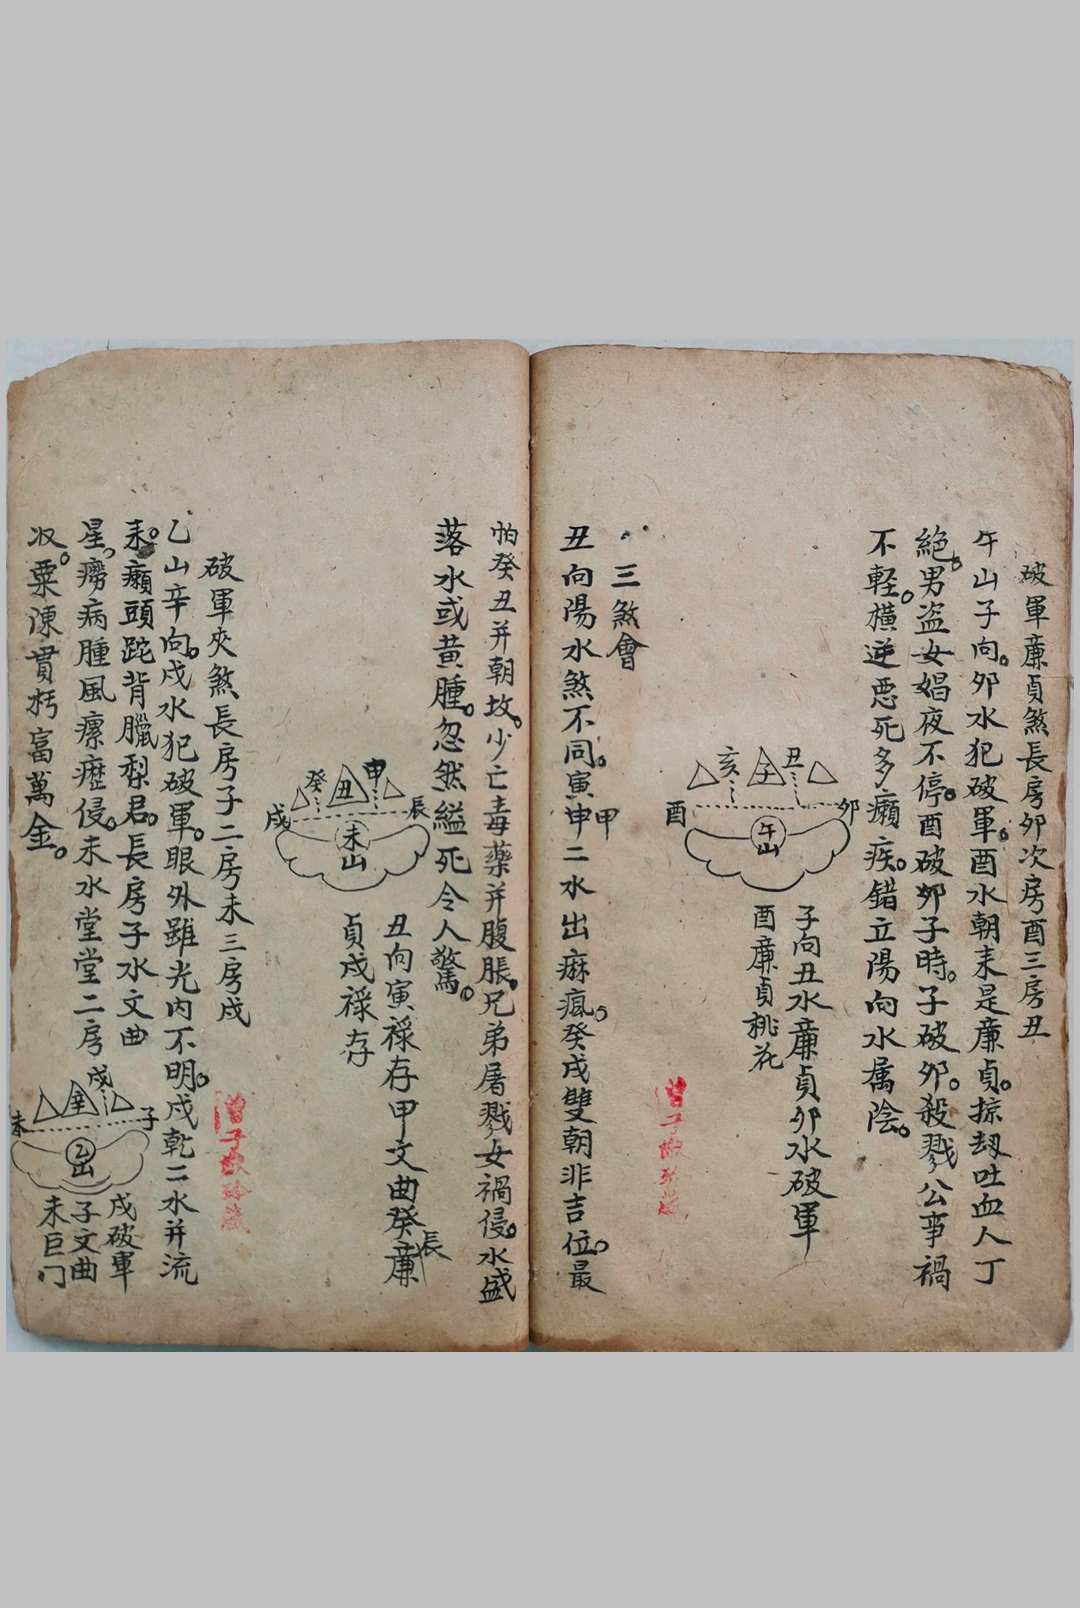 破軍廉貞煞長房夘次房酉三房丑
午山子向。夘水犯破軍。酉水朝来是廉貞。掠刼吐血人丁
絶。男盗女娼夜不停。酉破夘子時。子破夘。殺戮公事禍
不軽。横逆悪死多癩疾。錯立陽向水属陰。
亥
壬
丑
酉
夘
午山
子向丑水廉貞夘水破軍
酉廉貞桃花
三煞會
丑向陽水煞不同。寅申甲二水出痳瘋。癸戌雙朝非吉位。最
怕癸丑并朝坟。少亡毒藥并腹脹。兄弟屠戮女禍侵。水盛
落水或黄腫。忽然縊死令人驚。
癸
丑
申
戌
辰
未山
丑向寅禄存甲文曲癸廉
長
貞戌禄存
破軍夾煞長房子二房未三房戌
乙山辛向。戌水犯破軍。眼外雖光内不明。戌乾二水并流
来。癩頭跎背臘梨君。長房子水文曲
星。癆病腫風瘰癧侵。未水堂堂二房
収。粟陳貫朽富萬金。
戌
辛
未
子
乙山
戌破軍
子文曲
未巨门